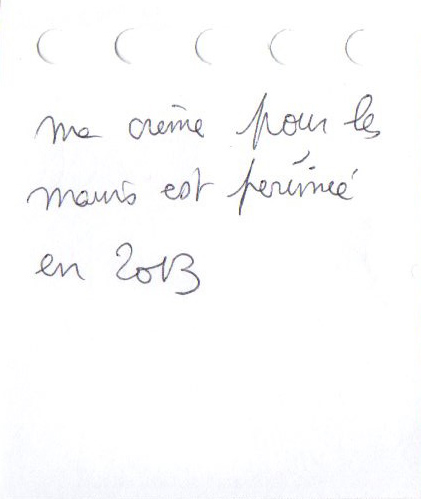 ma crème pour les
mains est périmée
en 2013